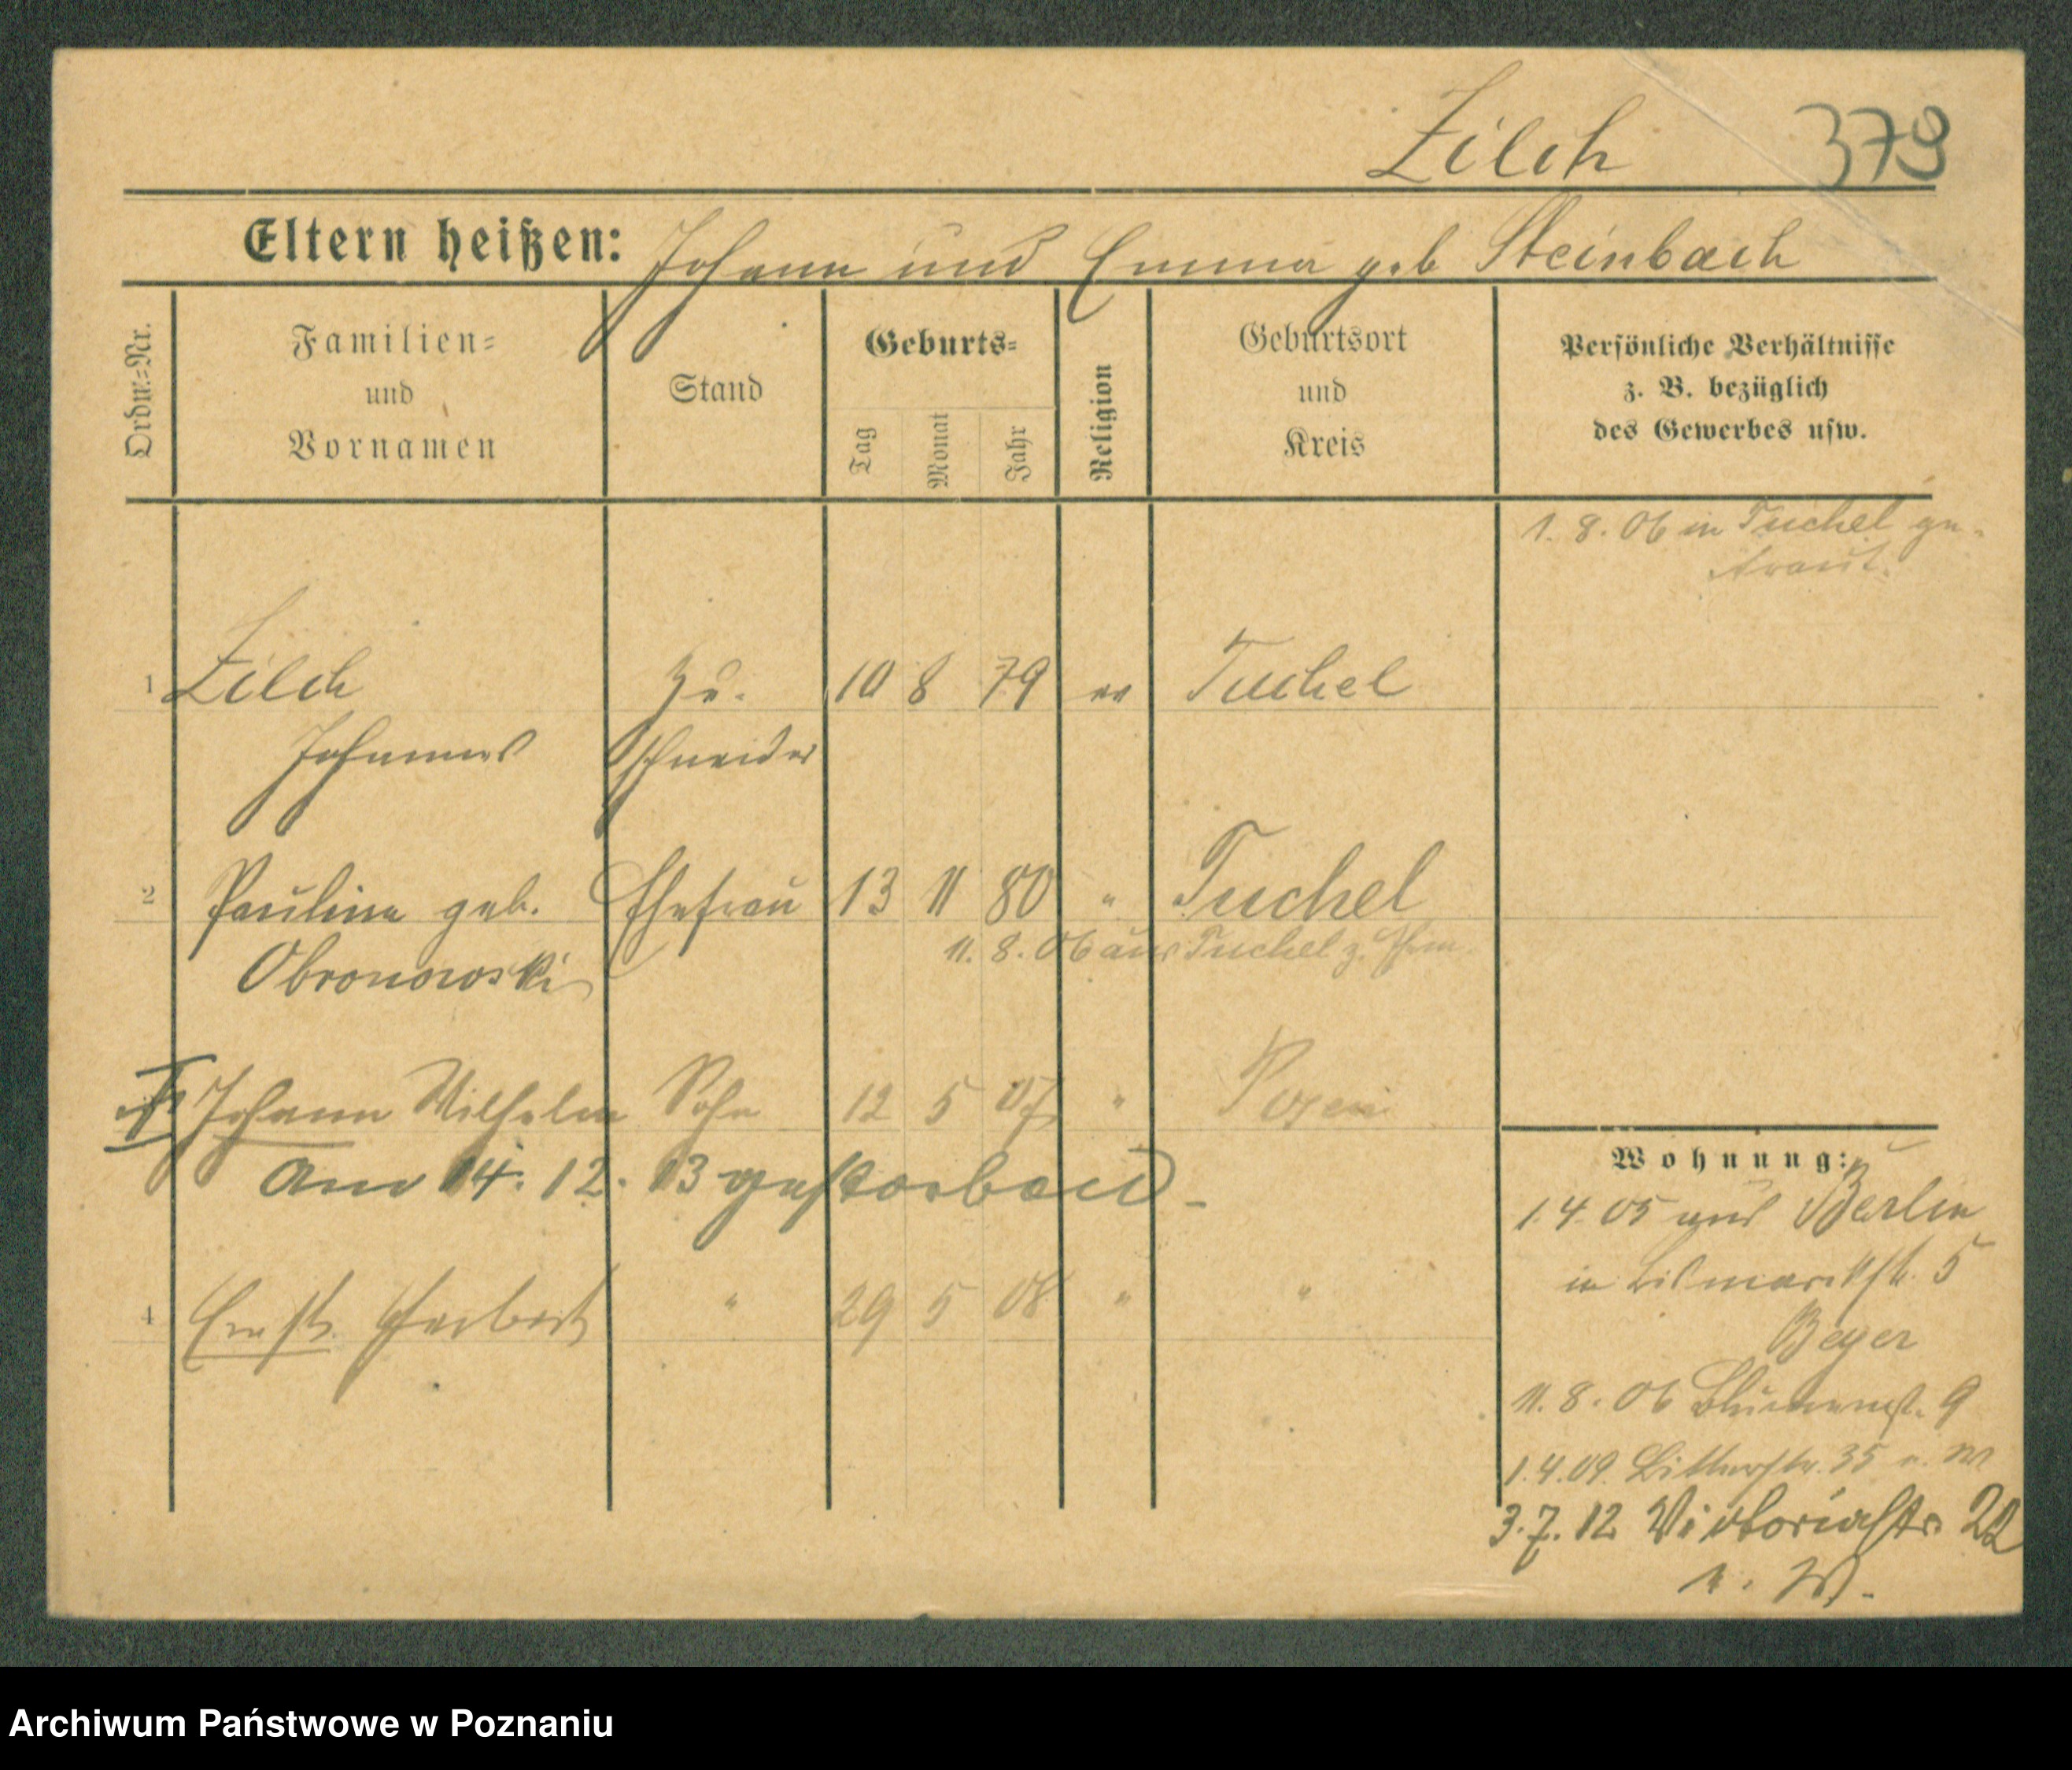 Zilch 379
Eltern heißen: Johann und Emma geb Steinbach
Ordn.=Nr.
Familien=
und
Vornamen
Stand
Geburts=
Tag
Monat
Jahr
Religion
Geburtsort
und
Kreis
Persönliche Verhältnisse
z. B. bezüglich
des Gewerbes usw.
1. 8. 06 in Tuchel ge-
traut.
1 Zilch Zu- 10 8 79 ev Tuchel
Johannes schneider
2 Pauline geb. Ehefrau 13 11 80 " Tuchel
Obronowski 11. 8. 06 aus Tuchel z.
Johann Wilhelm Sohn 12 5 07 " Posen
Am 14. 12. 13 gestorben -
4 Ernst Herbert " 29 5 08 " "
Wohnung:
1. 4. 05 aus Berlin
in Bismarckstr. 5
Beyer
11. 8. 06 Blumenst. 9
1. 4. 09. 35
3. 7. 12 Victoriastr 22
Archiwum Państwowe w Poznaniu